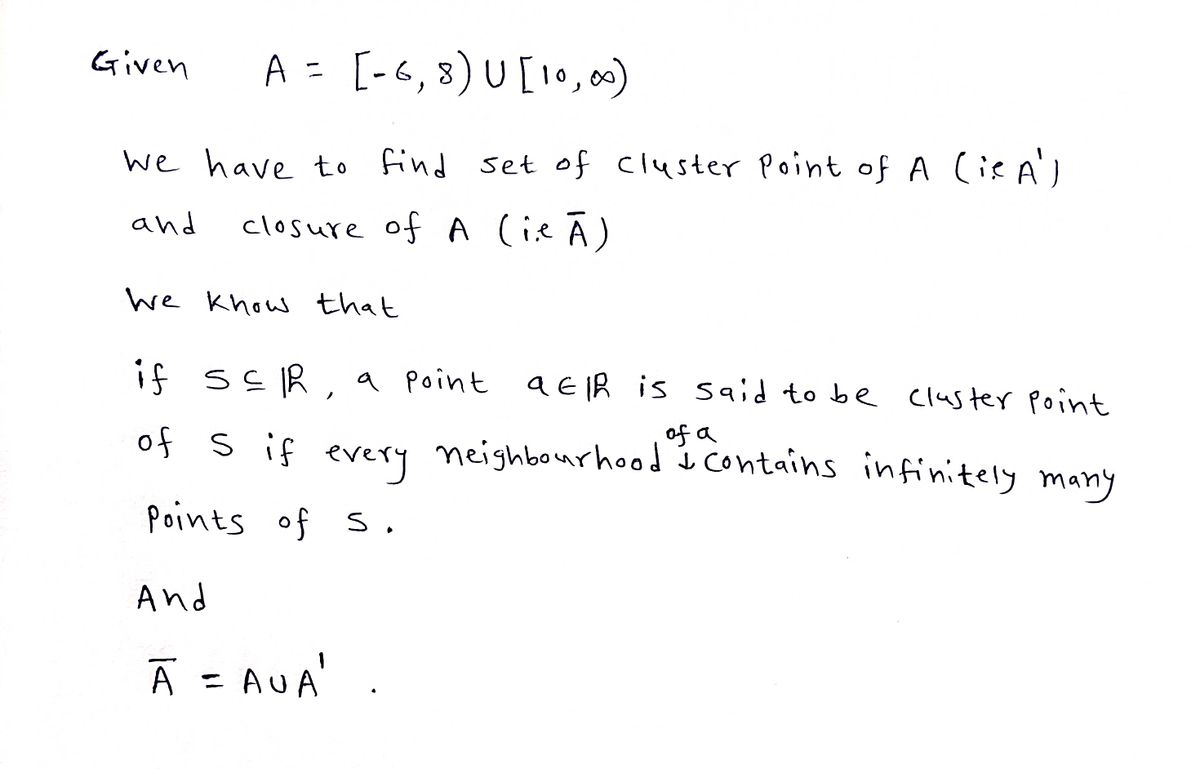 Given A = [-6, 8) ∪ [10, ∞)
We have to find set of cluster point of A (ie A')
and closure of A (i.e Ā)
We know that
if S ⊆ ℝ, a point a ∈ ℝ is said to be cluster point
of S if every neighbourhood of a ↓ contains infinitely many
points of S.
And
Ā = A ∪ A' .